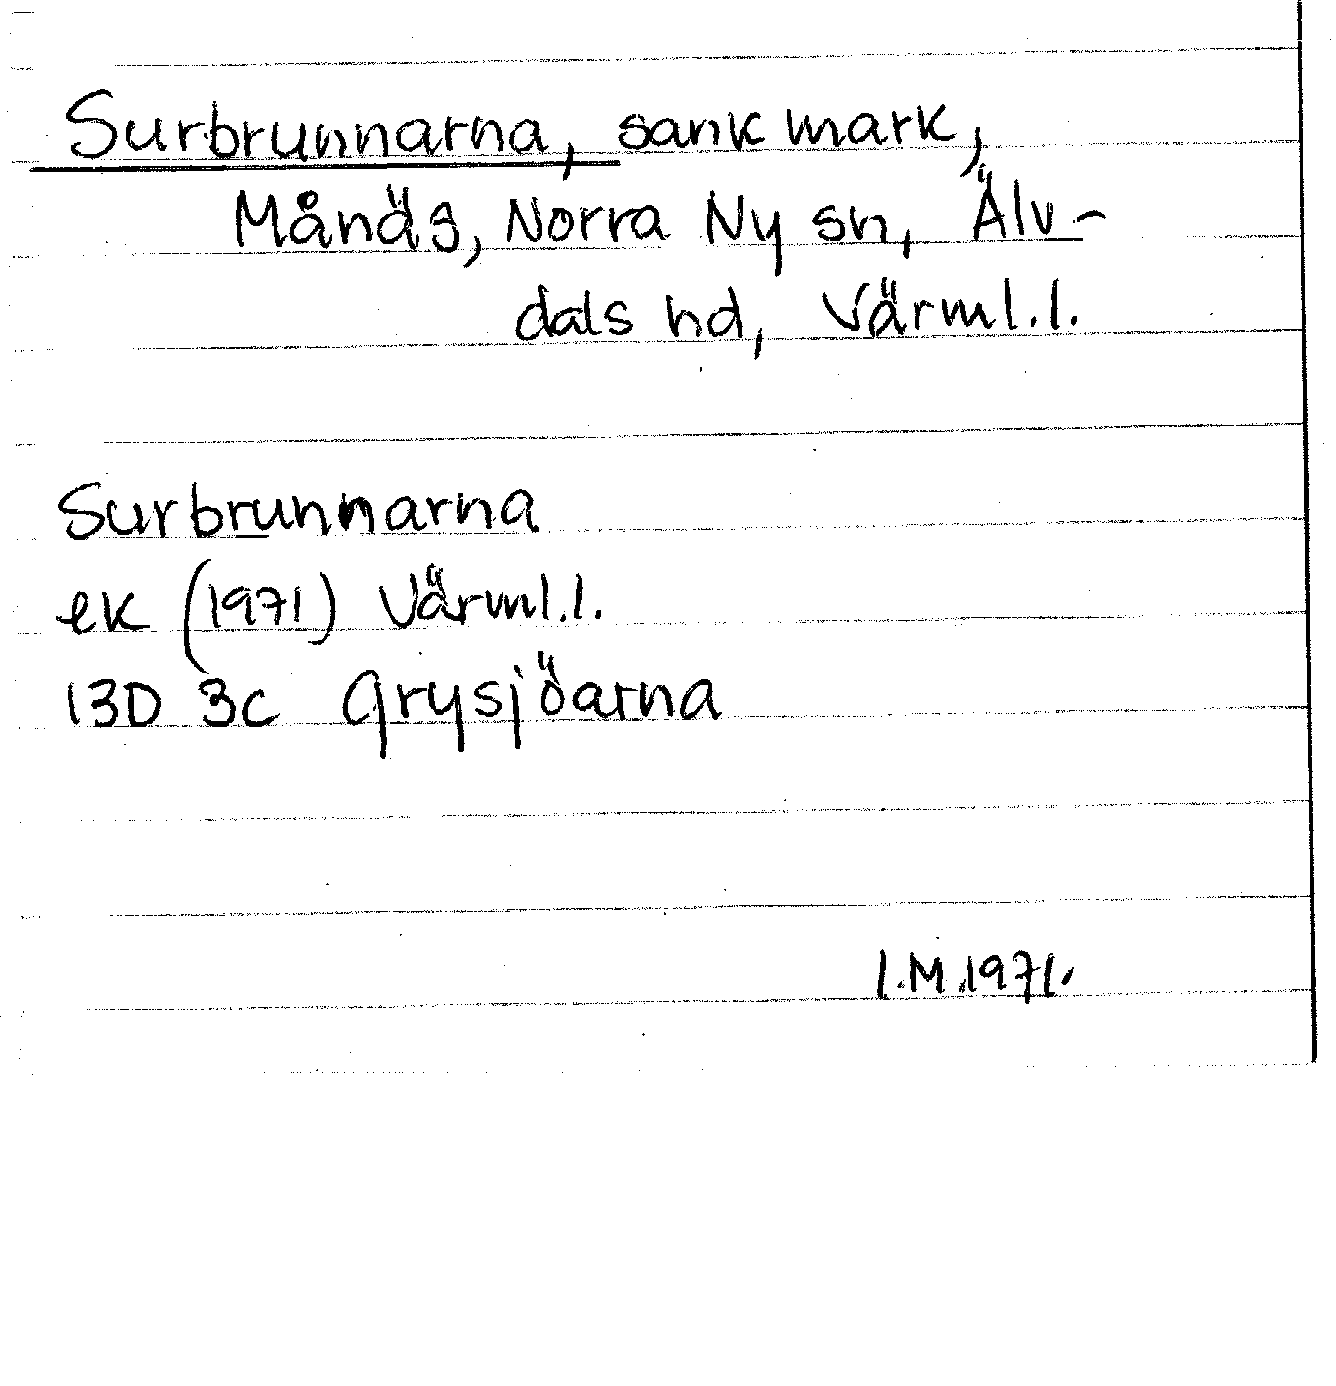 Surbrunnarna, sank mark,
Månäs, Norra Ny sn, Älv-
dals hd, Värml.l.
Surbrunnarna
ek (1971) Värml.l.
13D 3c Grysjöarna
I.M.1971.